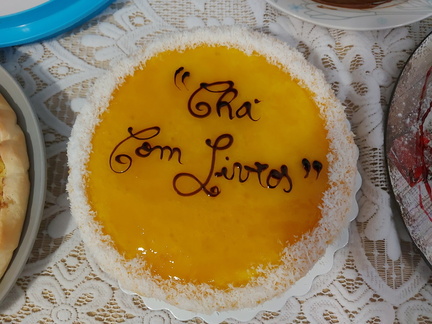 "Chá
Com Livros"